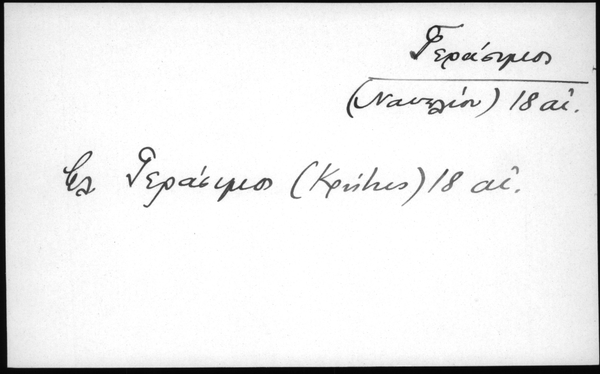 Γεράσιμος
(Ναυπλίου) 18 αἰ.
βλ Γεράσιμος (Κρήτης) 18 αἰ.